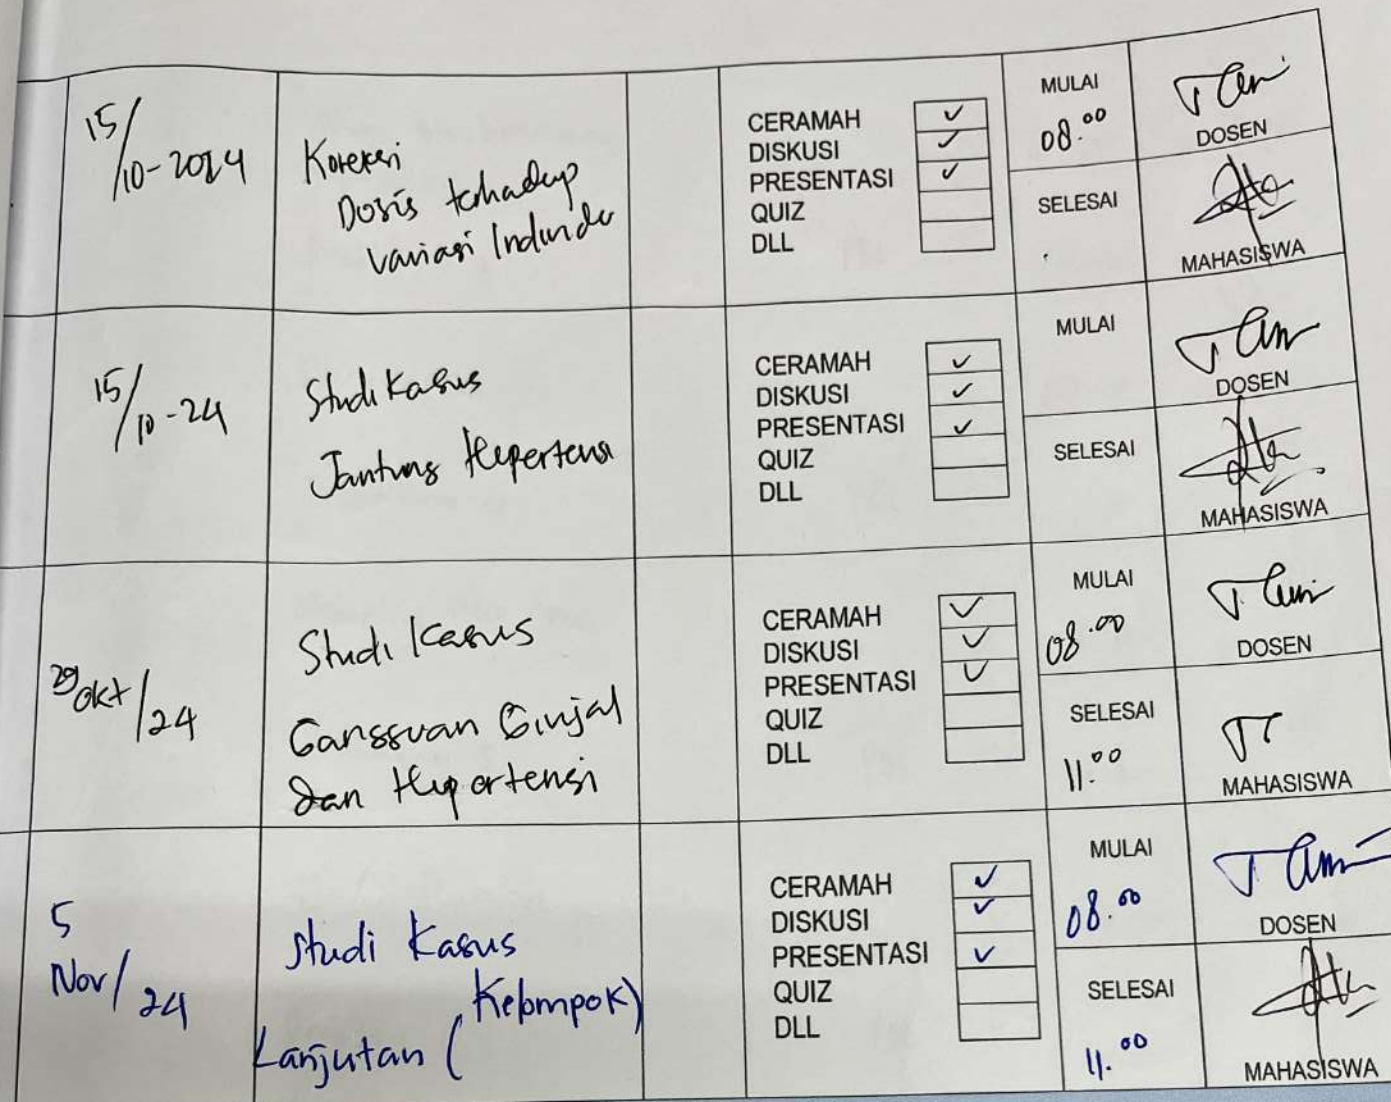 15/10-2024
Koreksi
Dosis terhadap
variasi Individu
CERAMAH ✓
DISKUSI ✓
PRESENTASI ✓
QUIZ
DLL
MULAI
08.00
SELESAI
DOSEN
MAHASISWA
15/10-24
Studi Kasus
Jantung Hepertensi
CERAMAH ✓
DISKUSI ✓
PRESENTASI ✓
QUIZ
DLL
MULAI
SELESAI
DOSEN
MAHASISWA
29 Okt/24
Studi Kasus
Gangguan Ginjal
dan Hepertensi
CERAMAH ✓
DISKUSI ✓
PRESENTASI ✓
QUIZ
DLL
MULAI
08.00
SELESAI
11.00
DOSEN
MAHASISWA
5
Nov/24
Studi Kasus
Kelompok)
Lanjutan (
CERAMAH ✓
DISKUSI ✓
PRESENTASI ✓
QUIZ
DLL
MULAI
08.00
SELESAI
11.00
DOSEN
MAHASISWA